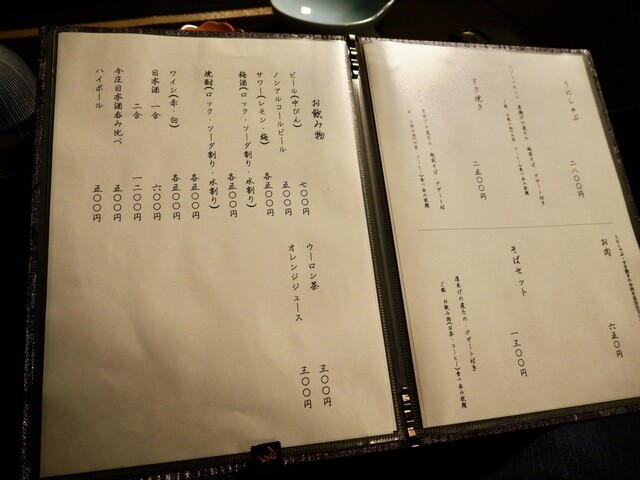 うにしゃぶ
二八〇〇円
すき焼き
二五〇〇円
お肉
六五〇円
そばセット
一三〇〇円
ご飯、お飲み物(お茶・コーヒー)食べ飲み放題
お飲み物
ビール(中びん)
七〇〇円
ノンアルコールビール
五〇〇円
サワー(レモン・梅)
各五〇〇円
梅酒(ロック・ソーダ割り・水割り)
各五〇〇円
焼酎(ロック・ソーダ割り・水割り)
各五〇〇円
ワイン(赤・白)
各五〇〇円
日本酒 一合
六〇〇円
二合
一二〇〇円
今庄日本酒呑み比べ
五〇〇円
ハイボール
五〇〇円
ウーロン茶
三〇〇円
オレンジジュース
三〇〇円